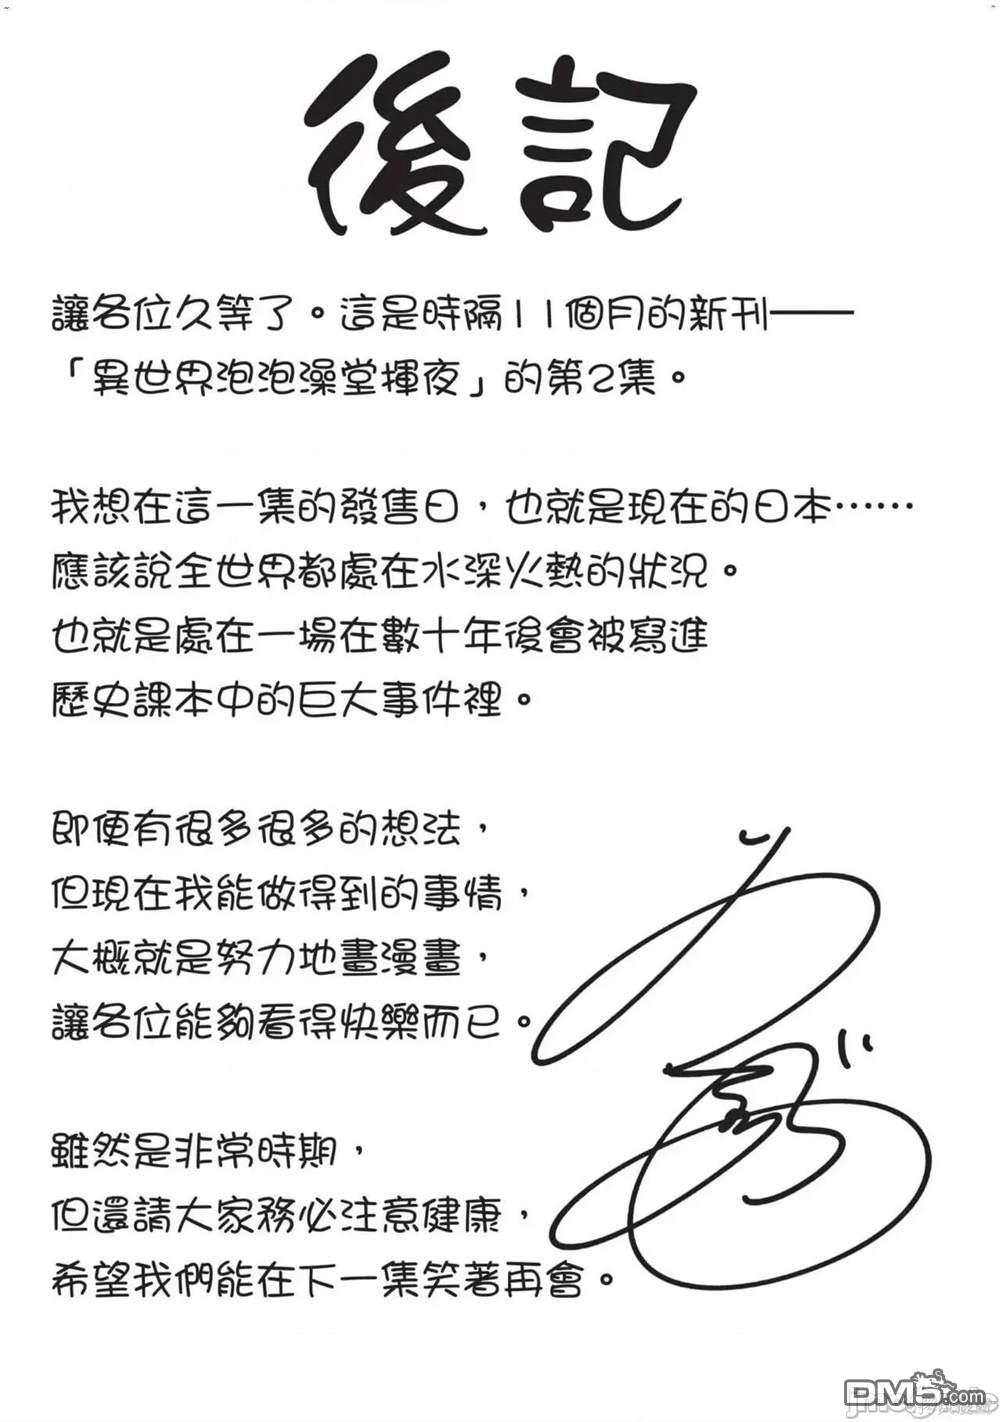 後記
讓各位久等了。這是時隔11個月的新刊——
「異世界泡泡澡堂揮夜」的第2集。
我想在這一集的發售日，也就是現在的日本……
應該說全世界都處在水深火熱的狀況。
也就是處在一場在數十年後會被寫進
歷史課本中的巨大事件裡。
即便有很多很多的想法，
但現在我能做得到的事情，
大概就是努力地畫漫畫，
讓各位能夠看得快樂而已。
雖然是非常時期，
但還請大家務必注意健康，
希望我們能在下一集笑著再會。
DM5.com